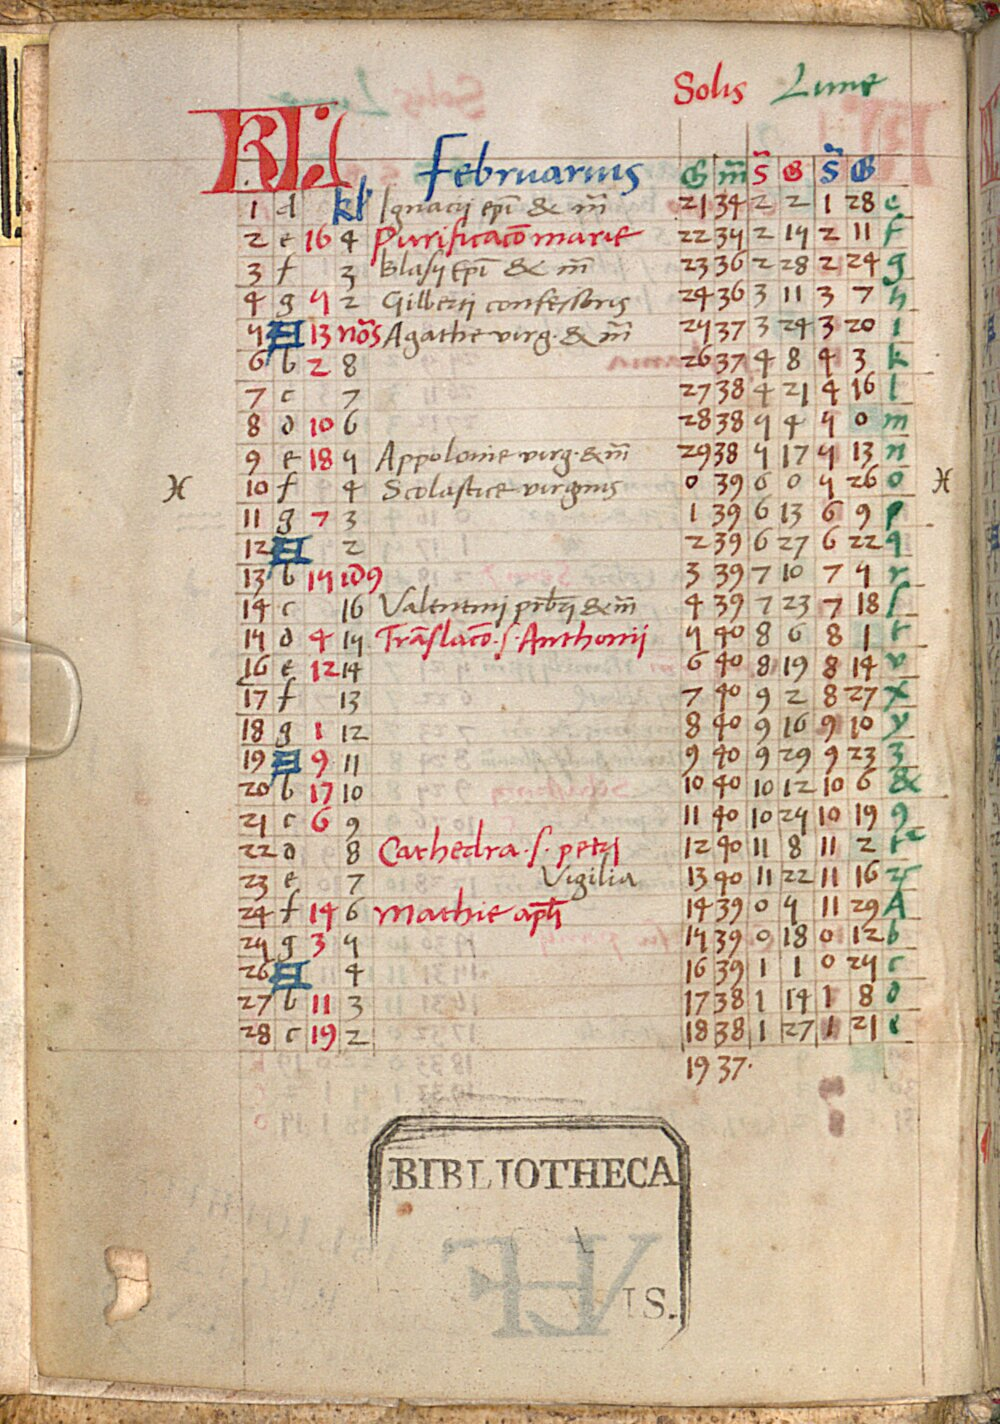 Solis Lune
KL
Februarius G m̃ s̃ G s̃ G
1 d kł Ignacij epĩ & m̃ 21 34 2 2 1 28 e
2 e 16 4 Purificacõ marie 22 35 2 15 2 11 f
3 f 3 Blasij Epĩ & m̃ 23 36 2 28 2 24 g
4 g 5 2 Gilberti confessoris 24 36 3 11 3 7 h
5 A 13 noñs Agathe virg. & m̃ 25 37 3 24 3 20 i
6 b 2 8 26 37 4 8 4 3 k
7 c 7 27 38 4 21 4 16 l
8 d 10 6 28 38 5 4 5 0 m
9 e 18 5 Appolonie virg. & m̃ 29 38 5 17 5 13 n
♓ 10 f 4 Scolastice virginis 0 39 6 0 5 26 o ♓
11 g 7 3 1 39 6 13 6 9 p
12 A 2 2 39 6 27 6 22 q
13 b 15 idꝰ 3 39 7 10 7 5 r
14 c 16 Valentini prb̃ri & m̃ 4 39 7 23 7 18 ſ
15 d 4 15 Trãslacõ. ſ. Anthonij 5 40 8 6 8 1 t
16 e 12 14 6 40 8 19 8 14 v
17 f 13 7 40 9 2 8 27 x
18 g 1 12 8 40 9 16 9 10 y
19 A 9 11 9 40 9 29 9 23 z
20 b 17 10 10 40 10 12 10 6 &
21 c 6 9 11 40 10 25 10 19 ꝯ
22 d 8 Cathedra. ſ. petri 12 40 11 8 11 2
23 e 7 Vigilia 13 40 11 22 11 16
24 f 14 6 Mathie apłi 14 39 0 5 11 29 A
25 g 3 5 15 39 0 18 0 12 b
26 A 4 16 39 1 1 0 25 c
27 b 11 3 17 38 1 14 1 8 d
28 c 19 2 18 38 1 27 1 21 e
19 37.
BIBLIOTHECA
IS.